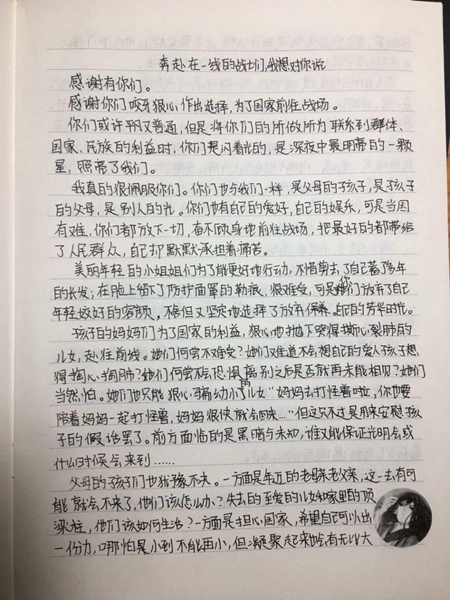 奔赴在一线的战士们,我想对你说
感谢有你们。
感谢你们咬牙狠心,作出选择,为了国家前往战场。
你们或许平凡又普通,但是将你们的所做所为联系到群体、
国家、民族的利益时,你们是闪着光的,是深夜中最明亮的一颗
星,照亮了我们。
我真的很佩服你们。你们也与我们一样,是父母的孩子,是孩子
的父母,是别人的光。你们也有自己的爱好,自己的娱乐,可是当国
有难,你们都放下一切,奋不顾身地前往战场,把最好的都带给
了人民群众,自己却默默承担着痛苦。
美丽年轻的小姐姐们为了能更好地行动,不惜剪去了自己蓄多年
的长发;在脸上留下了防护面罩的勒痕,很难受,可是她们放弃了自己
年轻姣好的容颜,不惜但又坚定地选择了放弃 自己的芳华时光。
孩子的妈妈们为了国家的利益,狠心地抛下哭得撕心裂肺的
儿女,赶往前线。她们何尝不难受?她们又难道不会想自己的爱人孩子想
得掏心掏肺?她们何尝不会恐惧离别之后是否就再未能相见?她们
当然怕。她们也只能狠心骗幼小的儿女“妈妈去打怪兽啦,你也要
陪着妈妈一起打怪兽,妈妈很快就会回来…”但这只不过是用来安慰孩
子的假话罢了。前方面临的是黑暗与未知,谁又能保证光明会或
什么时候会来到……
父母的孩子们也犹豫不决。一方面是年迈的老母老父亲,这一去有可
能就会不来了,他们该怎么办?失去的至爱的儿女和家里的顶
梁柱,他们该如何生活?一方面是担心国家,希望自己可以出
一份力,哪怕是小到不能再小,但凝聚起来哈有无比大